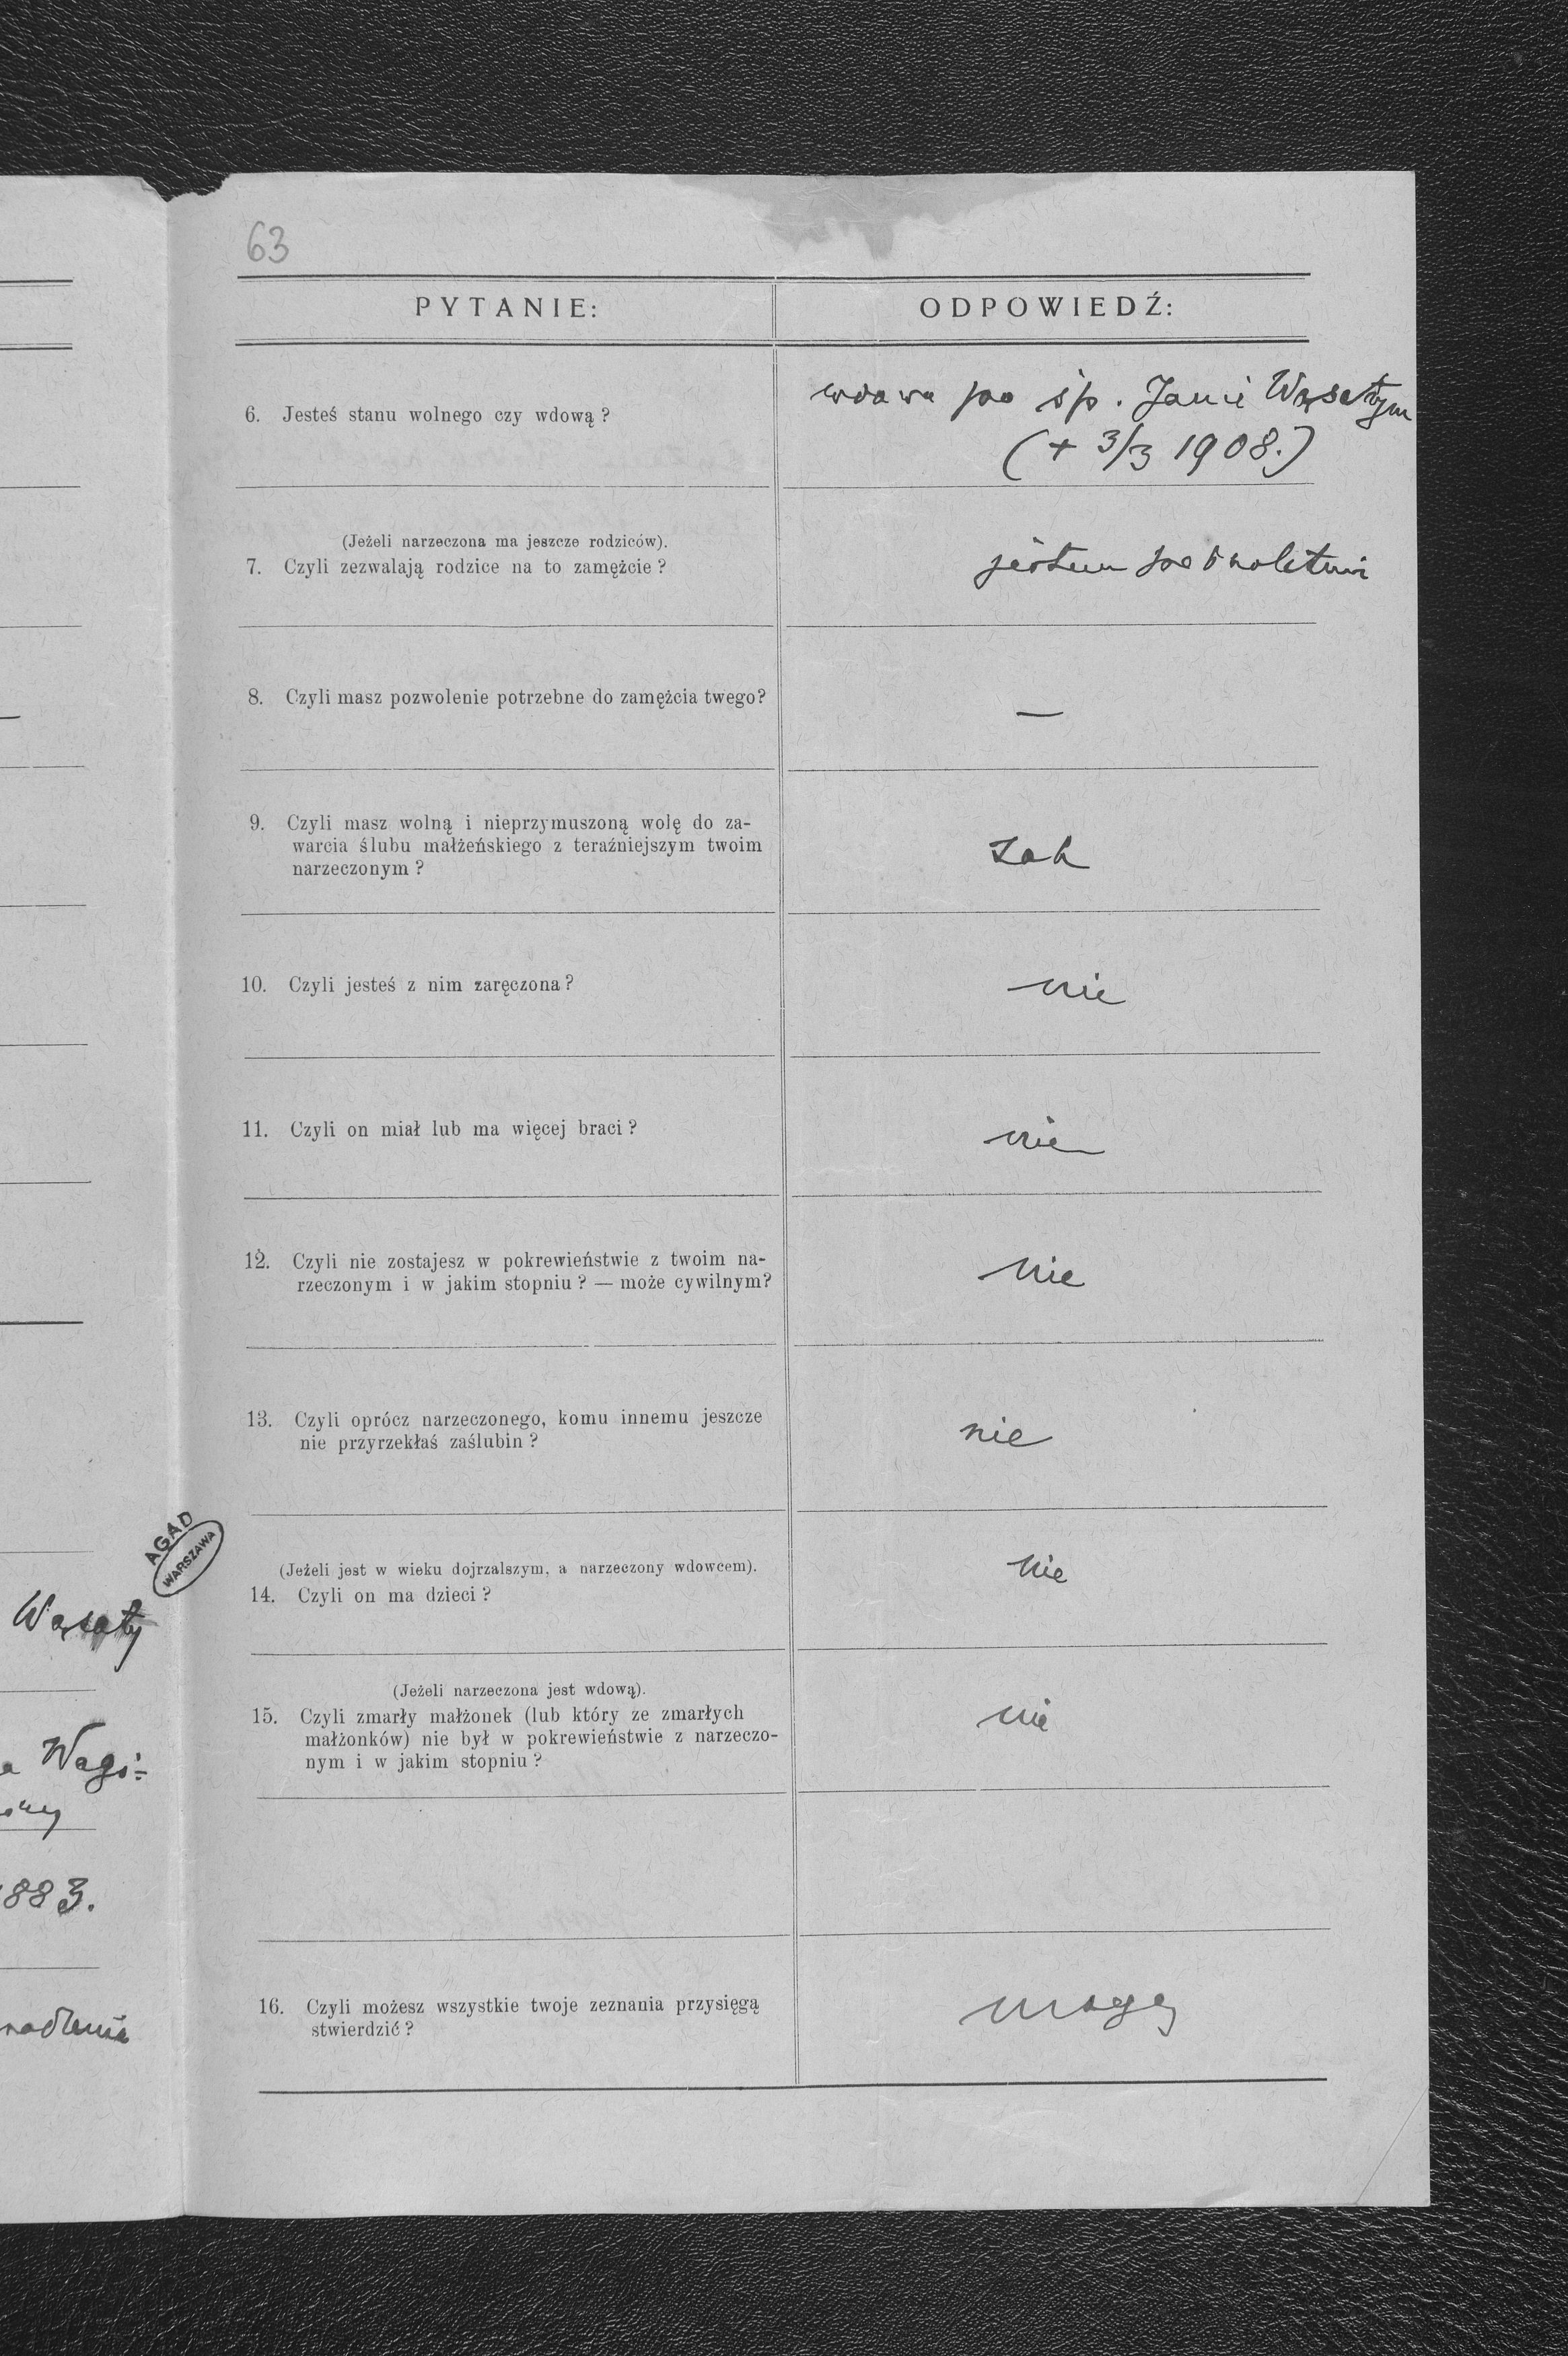 63
PYTANIE:
ODPOWIEDŹ:
6. Jesteś stanu wolnego czy wdową ?
wdowa po śp. Janie Wąsatym
(+ 3/3 1908.)
(Jeżeli narzeczona ma jeszcze rodziców).
7. Czyli zezwalają rodzice na to zamężcie ?
jestem
8. Czyli masz pozwolenie potrzebne do zamężcia twego?
—
9. Czyli masz wolną i nieprzymuszoną wolę do za-
warcia ślubu małżeńskiego z teraźniejszym twoim
narzeczonym ?
tak
10. Czyli jesteś z nim zaręczona ?
nie
11. Czyli on miał lub ma więcej braci ?
nie
12. Czyli nie zostajesz w pokrewieństwie z twoim na-
rzeczonym i w jakim stopniu ? — może cywilnym?
nie
13. Czyli oprócz narzeczonego, komu innemu jeszcze
nie przyrzekłaś zaślubin ?
nie
(Jeżeli jest w wieku dojrzalszym, a narzeczony wdowcem).
14. Czyli on ma dzieci ?
nie
(Jeżeli narzeczona jest wdową).
15. Czyli zmarły małżonek (lub który ze zmarłych
małżonków) nie był w pokrewieństwie z narzeczo-
nym i w jakim stopniu ?
nie
16. Czyli możesz wszystkie twoje zeznania przysięgą
stwierdzić ?
mogę
AGAD
WARSZAWA
Wąsaty
Wagi-
883.